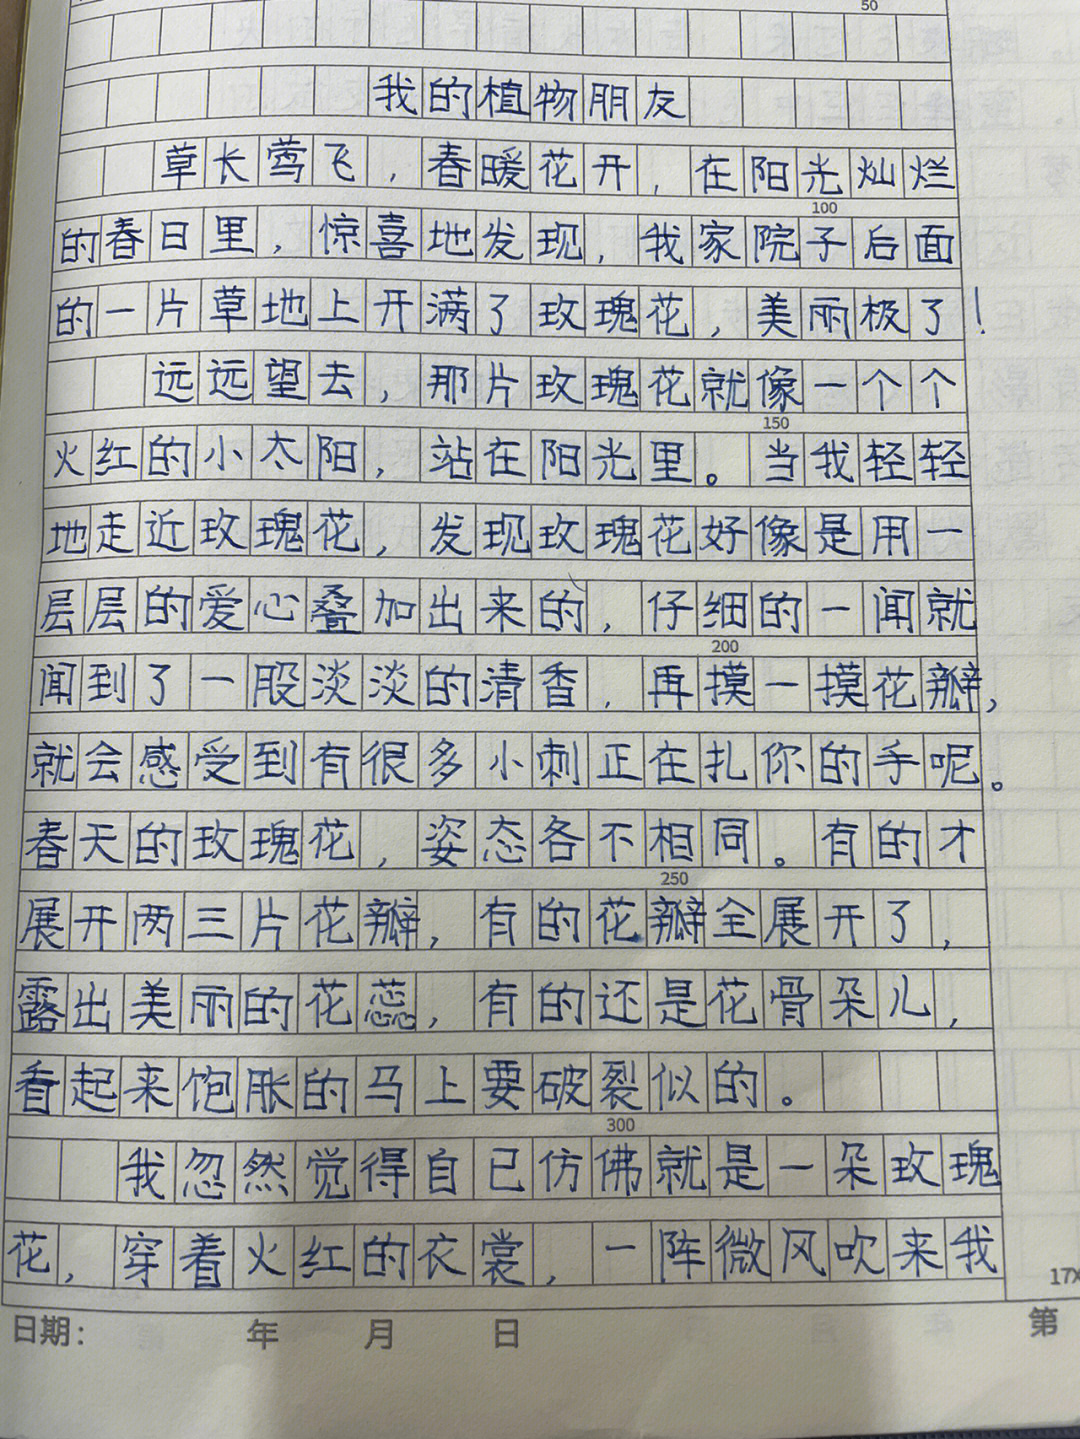 50
我的植物朋友
草长莺飞，春暖花开，在阳光灿烂
100
的春日里，惊喜地发现，我家院子后面
的一片草地上开满了玫瑰花，美丽极了！
远远望去，那片玫瑰花就像一个个
150
火红的小太阳，站在阳光里。当我轻轻
地走近玫瑰花，发现玫瑰花好像是用一
层层的爱心叠加出来的，仔细的一闻就
200
闻到了一股淡淡的清香，再摸一摸花瓣，
就会感受到有很多小刺正在扎你的手呢。
春天的玫瑰花，姿态各不相同。有的才
250
展开两三片花瓣，有的花瓣全展开了，
露出美丽的花蕊，有的还是花骨朵儿，
看起来饱胀的马上要破裂似的。
300
我忽然觉得自己仿佛就是一朵玫瑰
花，穿着火红的衣裳，一阵微风吹来我
17×
日期： 年 月 日 第